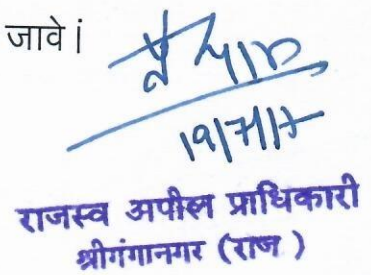 जावे।
19/7/17
राजस्व अपील प्राधिकारी
श्रीगंगानगर (राज )